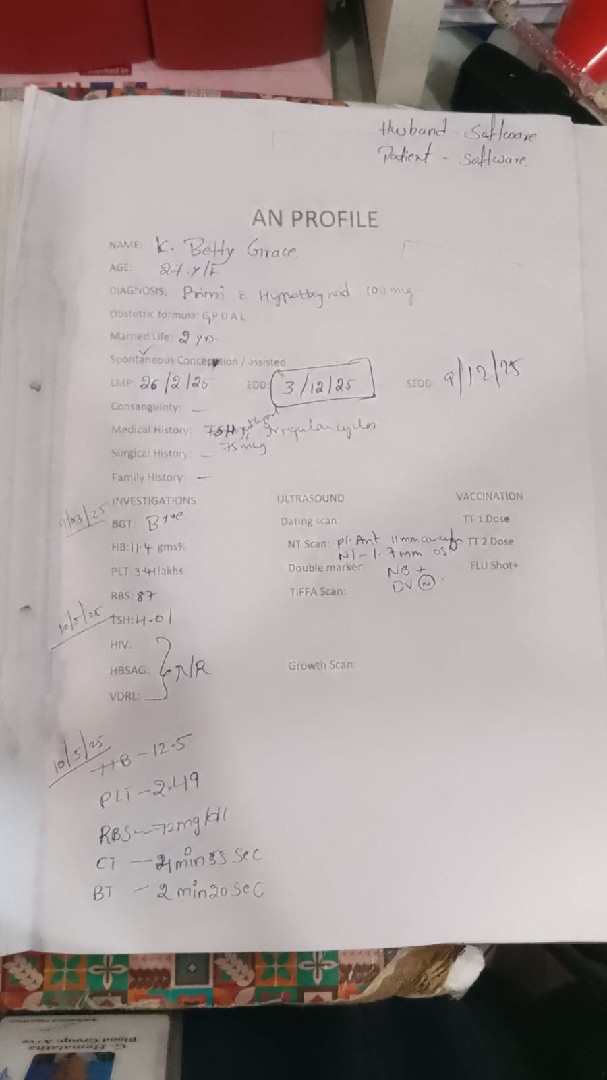 Husband - Software
Patient - Software
AN PROFILE
NAME: K. Betty Grace
AGE: 27 y/F
DIAGNOSIS: Primi c Hypothyroid 100 mg
Obstetric formula: G P 0 A L
Married Life: 2 yrs
Spontaneous Conception / assisted
LMP: 26/2/25 EDD: 3/12/25 SEDD: 9/12/25
Consanguinty: —
Medical History: Irregular cycles
75 mcg
Surgical History: —
Family History: —
INVESTIGATIONS ULTRASOUND VACCINATION
/03/25
BGT: B+ve Dating scan: TT 1 Dose
HB: 11.4 gms% NT Scan: pl. Ant 11mm away TT 2 Dose
NT - 1.7mm OS
PLT: 3.41 lakhs Double marker: NB + FLU Shot+
RBS: 87 TIFFA Scan: DV N
10/5/25
TSH: 4.01
HIV:
HBSAG: NR Growth Scan:
VDRL:
10/5/25
HB - 12.5
PLT - 2.49
RBS - 72mg/dl
CT - min 35 Sec
BT - 2 min 20 Sec
C. Hemalatha
Blood Group: A+ve